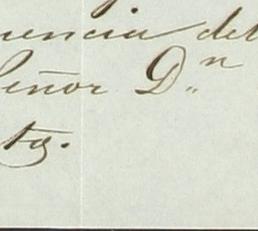 uencia del
Señor Dn
ta.